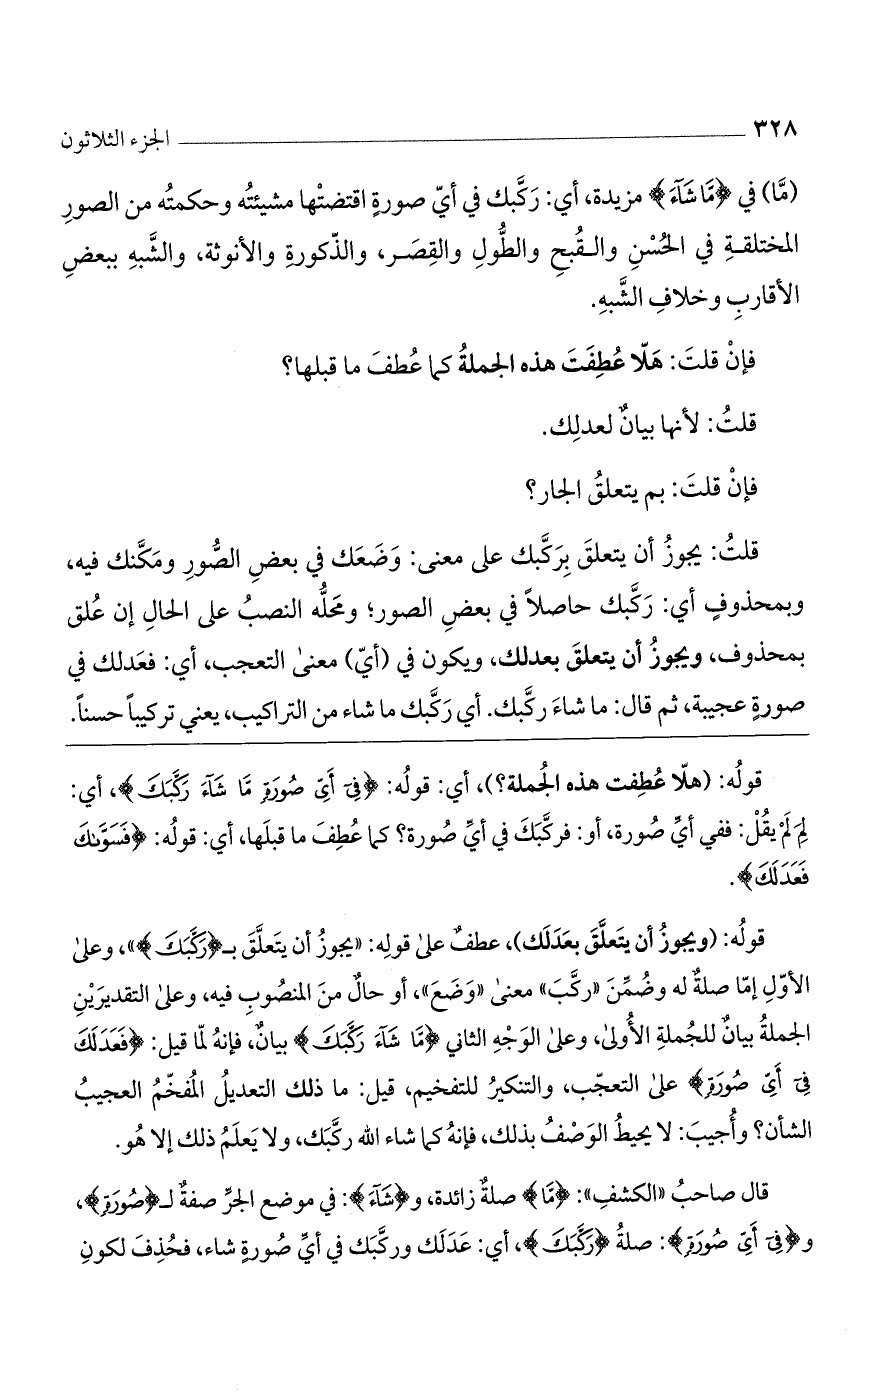 ٣٢٨ الجزء الثلاثون
(مَّا) في ﴿مَّا شَآءَ﴾ مزيدة، أي: رَكَّبك في أيّ صورةٍ اقتضتْها مشيئتُه وحكمتُه من الصورِ
المختلقـةِ في الحُسْنِ والـقُبحِ والطُّولِ والقِصَـر، والذّكورةِ والأنوثة، والشَّبهِ ببعضِ
الأقاربِ وخلافِ الشَّبهِ.
فإنْ قلتَ: هَلّا عُطِفَتَ هذه الجملةُ كما عُطفَ ما قبلها؟
قلتُ: لأنها بيانٌ لعدلِك.
فإنْ قلتَ: بم يتعلقُ الجار؟
قلتُ: يجوزُ أن يتعلقَ بِرَكَّبك على معنى: وَضَعَك في بعضِ الصُّورِ ومَكَّنك فيه،
وبمحذوفٍ أي: رَكَّبك حاصلاً في بعضِ الصور؛ ومَحلُّه النصبُ على الحالِ إن عُلق
بمحذوف، ويجوزُ أن يتعلقَ بعدلك، ويكون في (أيّ) معنىٰ التعجب، أي: فعَدلك في
صورةٍ عجيبة، ثم قال: ما شاءَ ركَّبك. أي رَكَّبك ما شاء من التراكيب، يعني تركيباً حسناً.
قولُه: (هلّا عُطِفت هذه الجُملة؟)، أي: قولُه: ﴿فِىٓ أَىِّ صُورَةٍ مَّا شَآءَ رَكَّبَكَ﴾، أي:
لِمَ لَمْ يقُلْ: ففي أيِّ صُورة، أو: فركَّبَكَ في أيِّ صُورة؟ كما عُطِفَ ما قبلَها، أي: قولُه: ﴿فَسَوَّىٰكَ
فَعَدَلَكَ﴾.
قولُه: (ويجوزُ أن يتَعلَّقَ بعَدَلَك)، عطفٌ علىٰ قولِه: «يجوزُ أن يتَعلَّقَ بـ﴿رَكَّبَكَ﴾»، وعلىٰ
الأوّلِ إمّا صلةٌ له وضُمِّنَ «ركَّبَ» معنىٰ «وَضَعَ»، أو حالٌ منَ المنصُوبِ فيه، وعلىٰ التقديرَيْنِ
الجملةُ بيانٌ للجُملةِ الأُولىٰ، وعلىٰ الوَجْهِ الثاني ﴿مَّا شَآءَ رَكَّبَكَ﴾ بيانٌ، فإنهُ لمّا قيل: ﴿فَعَدَلَكَ
فِىٓ أَىِّ صُورَةٍ﴾ علىٰ التعجّب، والتنكيرُ للتفخيم، قيل: ما ذلك التعديلُ المُفخّمُ العجيبُ
الشأن؟ وأُجيبَ: لا يحيطُ الوَصْفُ بذلك، فإنهُ كما شاء الله ركَّبَك، ولا يَعلَمُ ذلك إلا هُو.
قال صاحبُ «الكشفِ»: ﴿مَّا﴾ صلةٌ زائدة، و﴿شَآءَ﴾: في موضع الجرِّ صفةٌ لـ﴿صُورَةٍ﴾،
و﴿فِىٓ أَىِّ صُورَةٍ﴾: صلةُ ﴿رَكَّبَكَ﴾، أي: عَدَلَك وركَّبَك في أيِّ صُورةٍ شاء، فحُذِفَ لكونِ